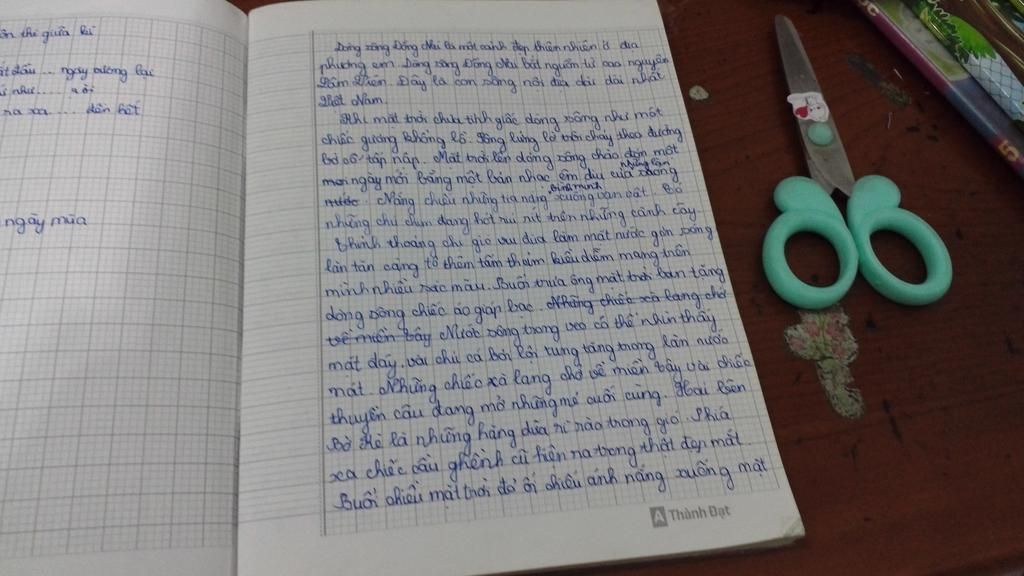 ôn thi giữa kì
ắt đầu ... ngày dương lại
ư như ... nôi
ra xa ... đến hết
ngãy múa
Dòng sông Đồng Nai là một cảnh đẹp thiên nhiên ở địa
phương em. Dòng sông Đồng Nai bắt nguồn từ cao nguyên
Lâm Viên. Đây là con sông nội địa dài dài nhất
Việt Nam.
Khi mặt trời chưa tỉnh giấc dòng sông như một
chiếc gương khổng lồ. Sông lững lờ trôi chảy theo đường
bờ cỏ tấp nập. Mặt trời lên dòng sông chào đón một
ngày mới bằng một bản nhạc êm dịu của những làn sóng
nước. Nắng chiếu những tia nắng bình minh xuống vạn vật. Bỏ
những chú chim đang hót ríu rít trên những cành cây.
Thỉnh thoảng chị gió vui đùa làm mặt nước gợn sóng
lăn tăn càng tô thêm tấm thảm kiều diễm mang trên
mình nhiều sắc màu. Buổi trưa ông mặt trời ban tặng
dòng sông chiếc áo giáp bạc. Những chiếc xà lang chở
về miền tây Nước sông trong veo có thể nhìn thấy
mặt đáy. vài chú cá bơi lội tung tăng trong làn nước
mát. Những chiếc xà lang chở về miền tây vài chiếc
thuyền câu đang mở những mẻ cuối cùng. Hai bên
Bờ kè là những hàng dừa rì rào trong gió. Phía
xa chiếc cầu ghềnh cũ hiên ra trong thật đẹp mắt.
Buổi chiều mặt trời đỏ ối chiếu ánh nắng xuống mặt
Thành Đạt